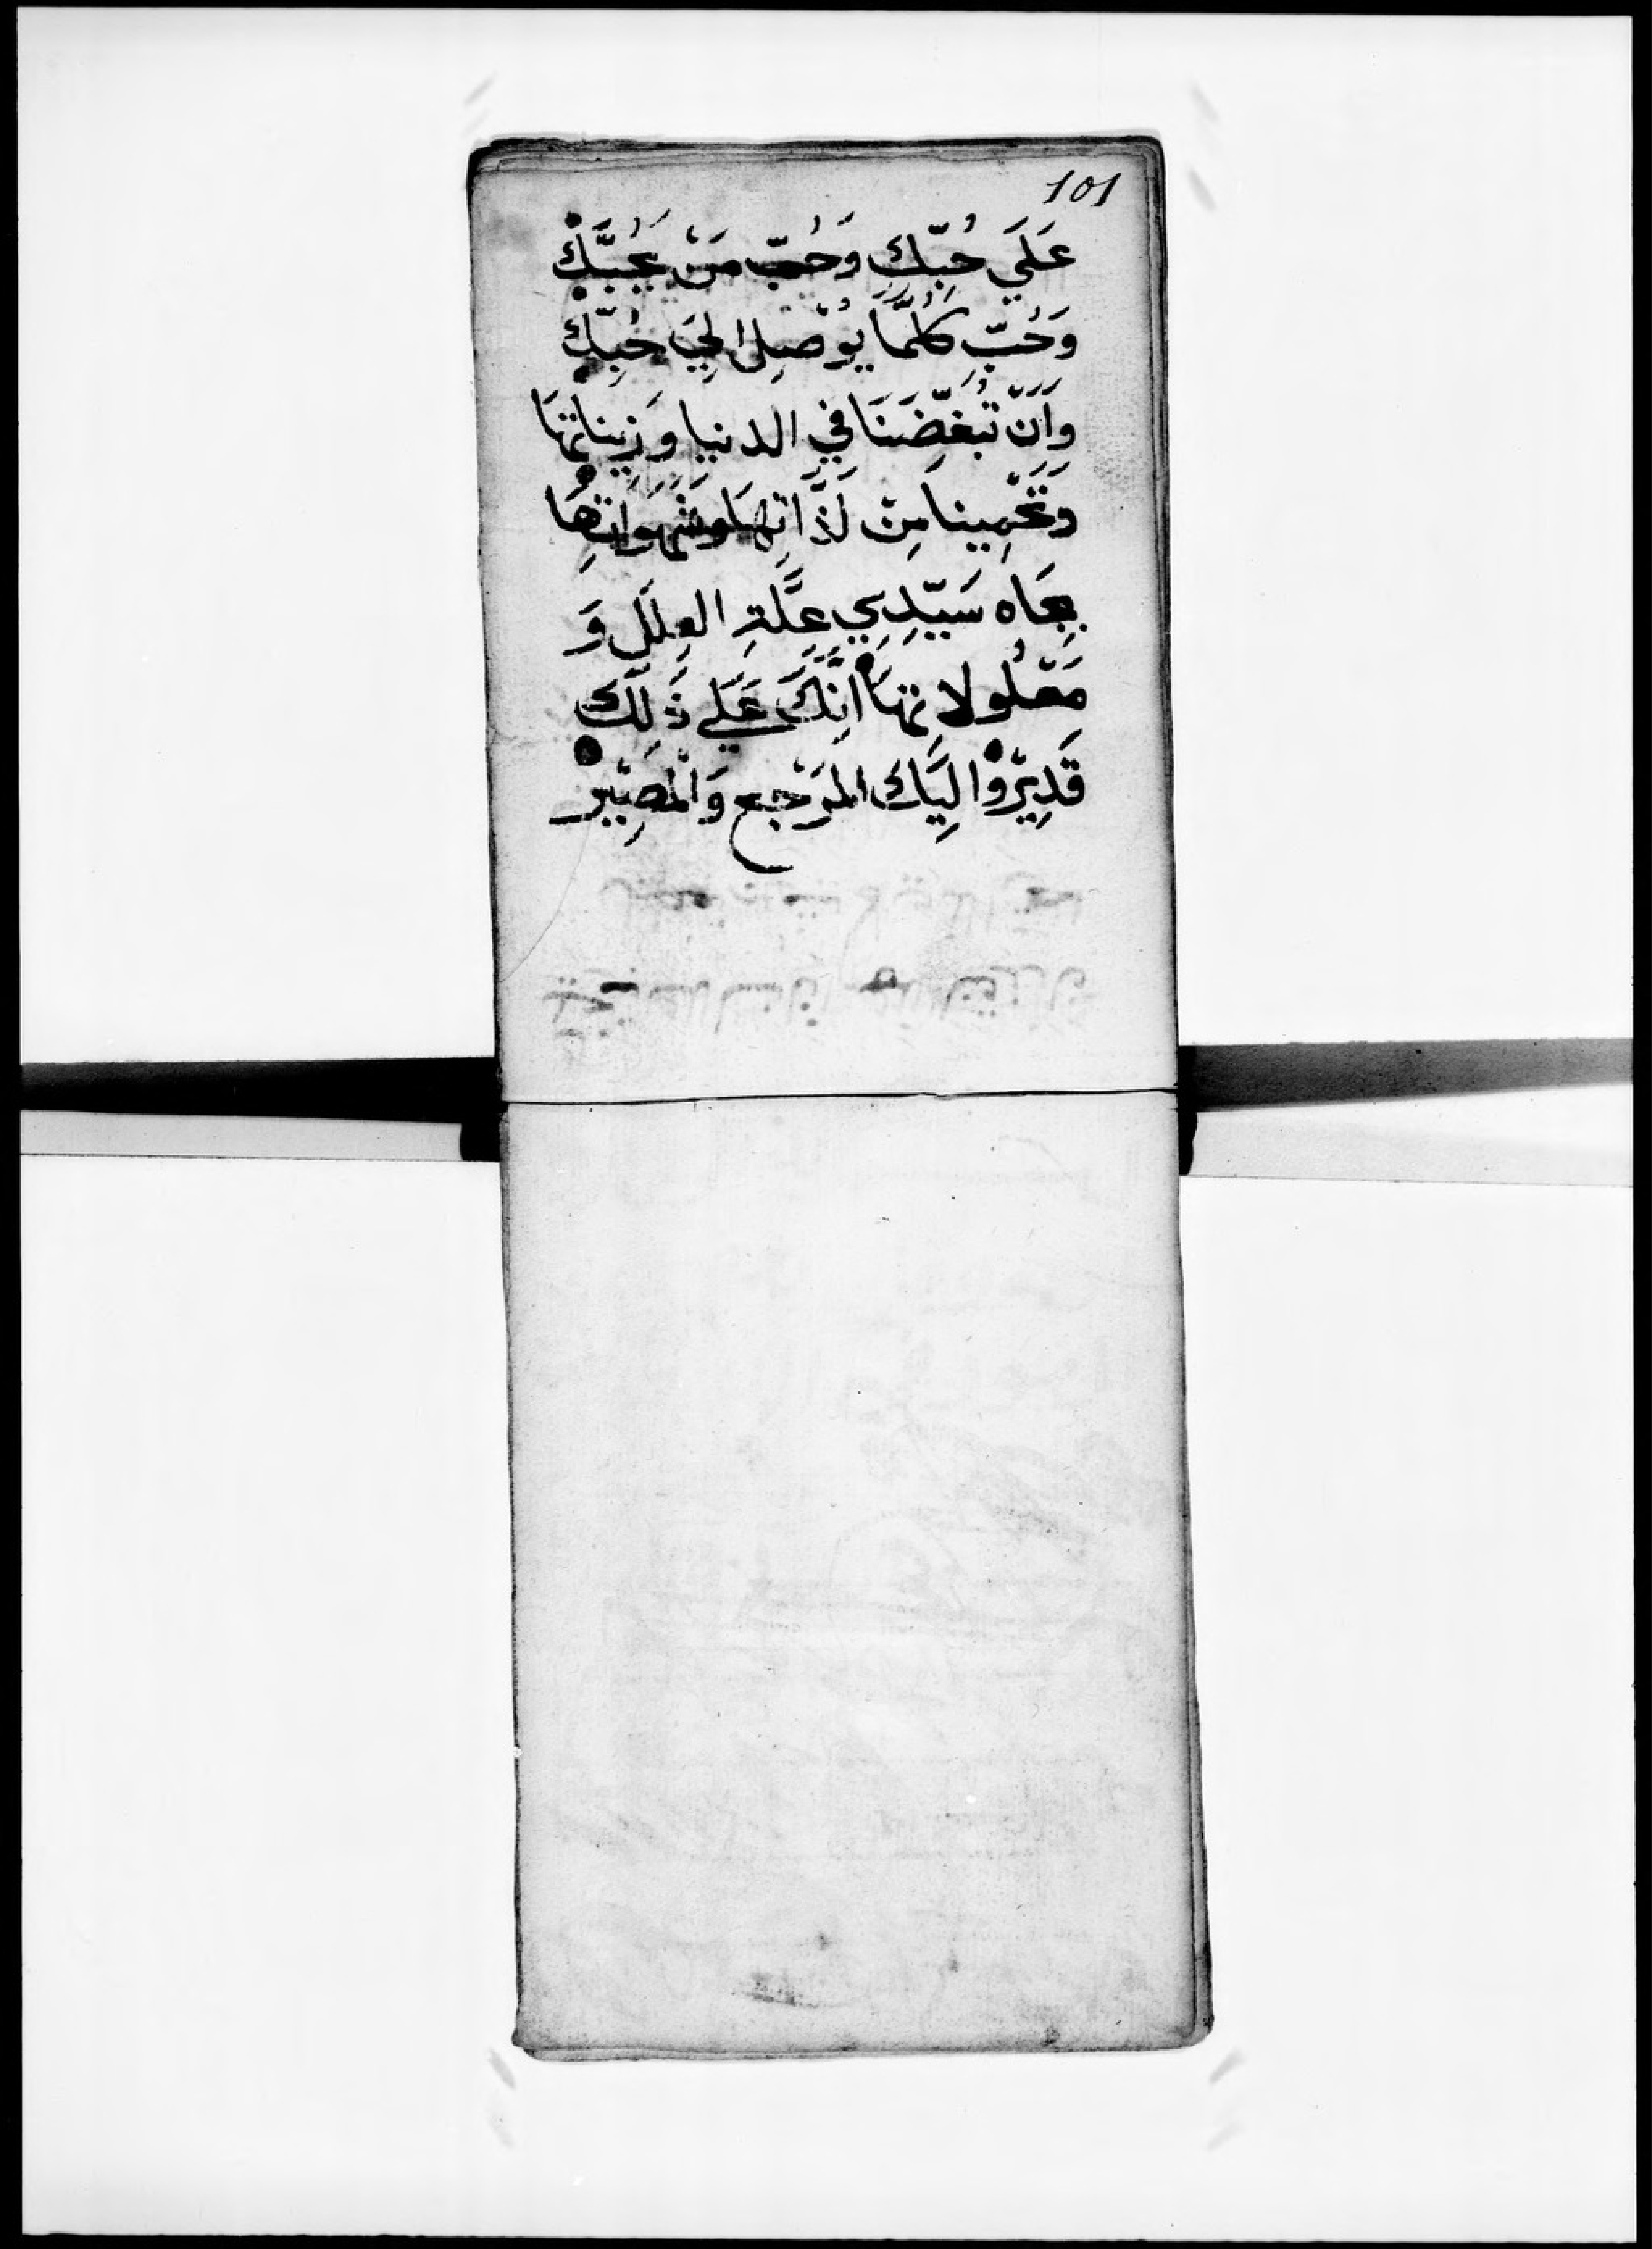 101
عَلَي حُبِّكَ وَحُبِّ مَنْ يُحُبَّكْ
وَحُبِّ كُلَّمَا يُوْصِلِ الِيَ حُبِّكْ
وَاَنّ تُبَغِّضَنَا فِي الدنيا وَزِيناتهَا
وَتَحْمِينا مِنْ لَذَّاتِهَا وَشَهَوَاتِهَا
بِجَاه سَيّدِي عِلَّةِ العِلَلِ وَ
مَعْلُولاتهَا اِنَّكَ عَلَي ذَلِكَ
قَدِيْرْ وَالِيَكَ المَرْجِع وَالْمَصِيْر